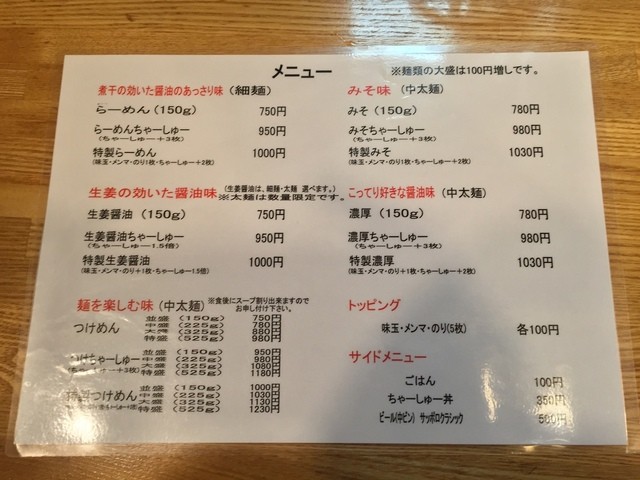 メニュー
※麺類の大盛は100円増しです。
煮干の効いた醤油のあっさり味（細麺）
らーめん（150g） 750円
らーめんちゃーしゅー 950円
（ちゃーしゅー＋3枚）
特製らーめん 1000円
（味玉・メンマ・のり1枚・ちゃーしゅー＋2枚）
みそ味（中太麺）
みそ（150g） 780円
みそちゃーしゅー 980円
（ちゃーしゅー＋3枚）
特製みそ 1030円
（味玉・メンマ・のり1枚・ちゃーしゅー＋2枚）
生姜の効いた醤油味（生姜醤油は、細麺・太麺 選べます。）
※太麺は数量限定です。
生姜醤油（150g） 750円
生姜醤油ちゃーしゅー 950円
（ちゃーしゅー1.5倍）
特製生姜醤油 1000円
（味玉・メンマ・のり＋1枚・ちゃーしゅー1.5倍）
こってり好きな醤油味（中太麺）
濃厚（150g） 780円
濃厚ちゃーしゅー 980円
（ちゃーしゅー＋3枚）
特製濃厚 1030円
（味玉・メンマ・のり＋1枚・ちゃーしゅー＋2枚）
麺を楽しむ味（中太麺）
※食後にスープ割り出来ますので
お申し付け下さい。
つけめん
並盛（150g） 750円
中盛（225g） 780円
大盛（325g） 880円
特盛（525g） 980円
つけちゃーしゅー
（ちゃーしゅー＋3枚）
並盛（150g） 950円
中盛（225g） 980円
大盛（325g） 1080円
特盛（525g） 1180円
特製つけめん
並盛（150g） 1000円
中盛（225g） 1030円
大盛（325g） 1130円
特盛（525g） 1230円
トッピング
味玉・メンマ・のり(5枚) 各100円
サイドメニュー
ごはん 100円
ちゃーしゅー丼 350円
ビール(中ビン) サッポロクラシック 500円